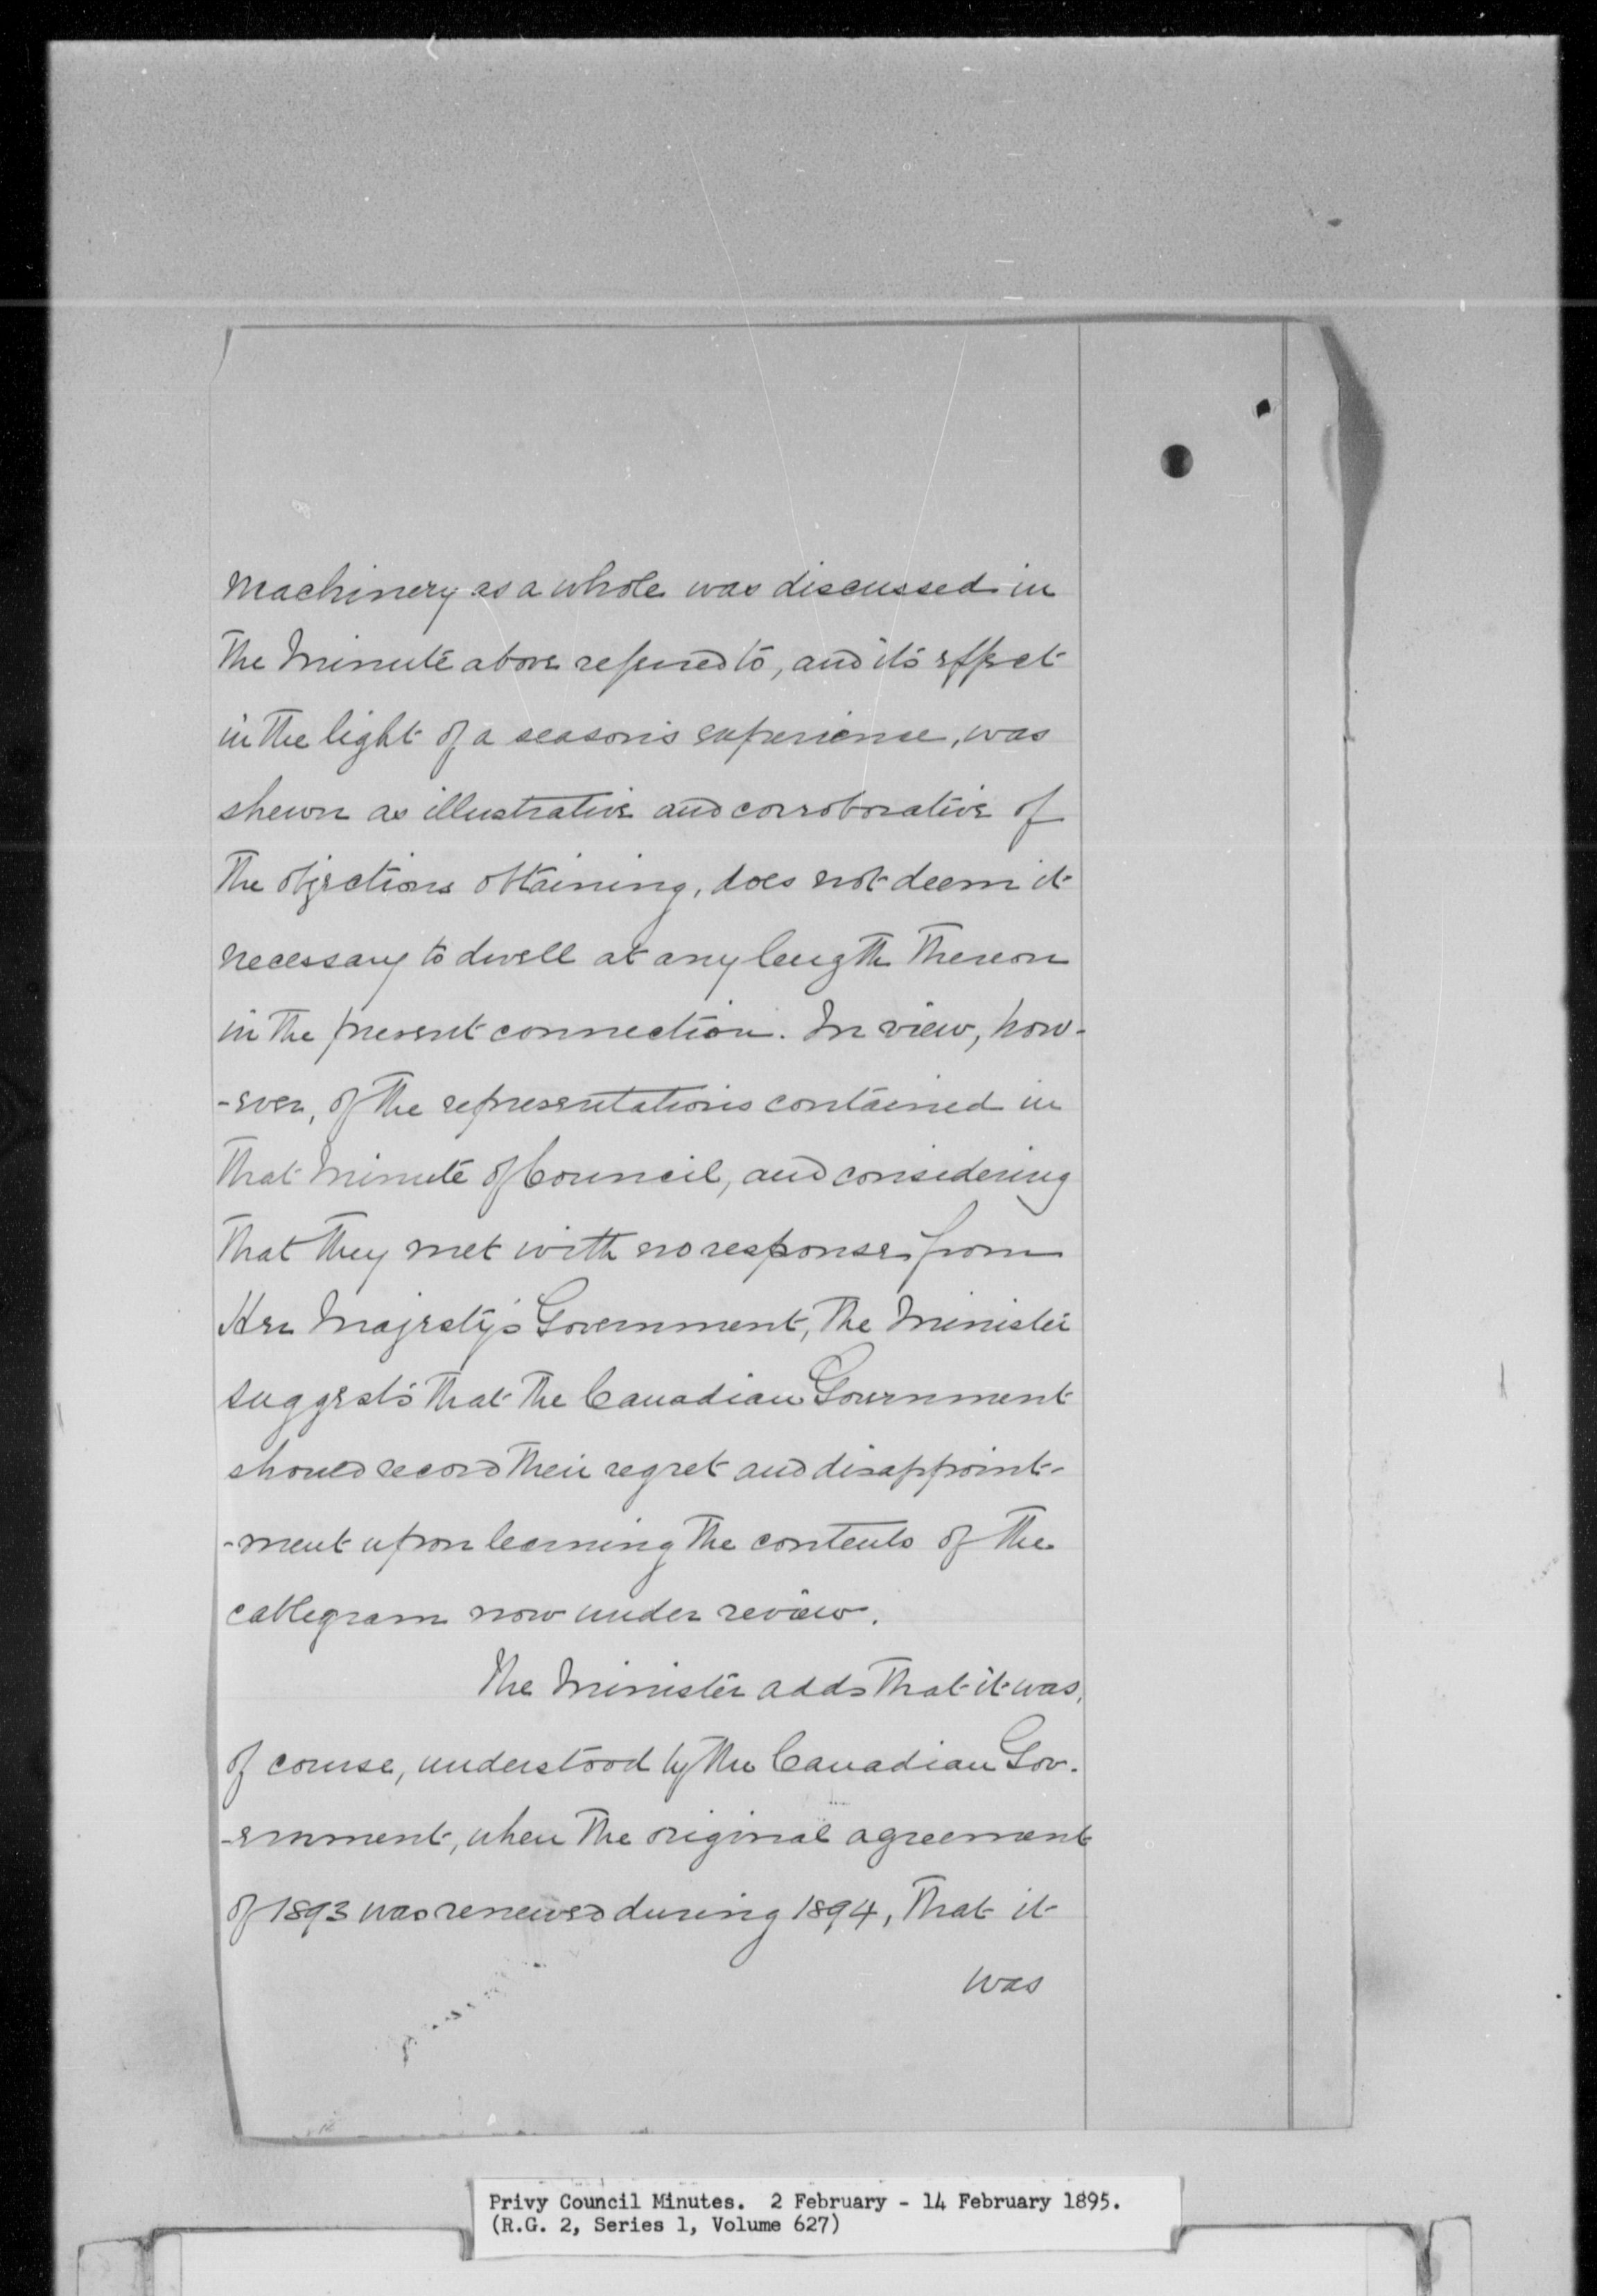 machinery as a whole was discussed in
the Minute above referred to, and its effect
in the light of a season's experience, was
shewn as illustrative and corroborative of
the objections obtaining, does not deem it
necessary to dwell at any length thereon
in the present connection. In view, how-
-ever, of the representations contained in
that Minute of Council, and considering
that they met with no response from
Her Majesty's Government, the Minister
suggests that the Canadian Government
should record their regret and disappoint-
-ment upon learning the contents of the
cablegram now under review.
The Minister adds that it was,
of course, understood by the Canadian Gov-
-ernment, when the original agreement
of 1893 was renewed during 1894, that it
was
Privy Council Minutes. 2 February - 14 February 1895.
(R.G. 2, Series 1, Volume 627)